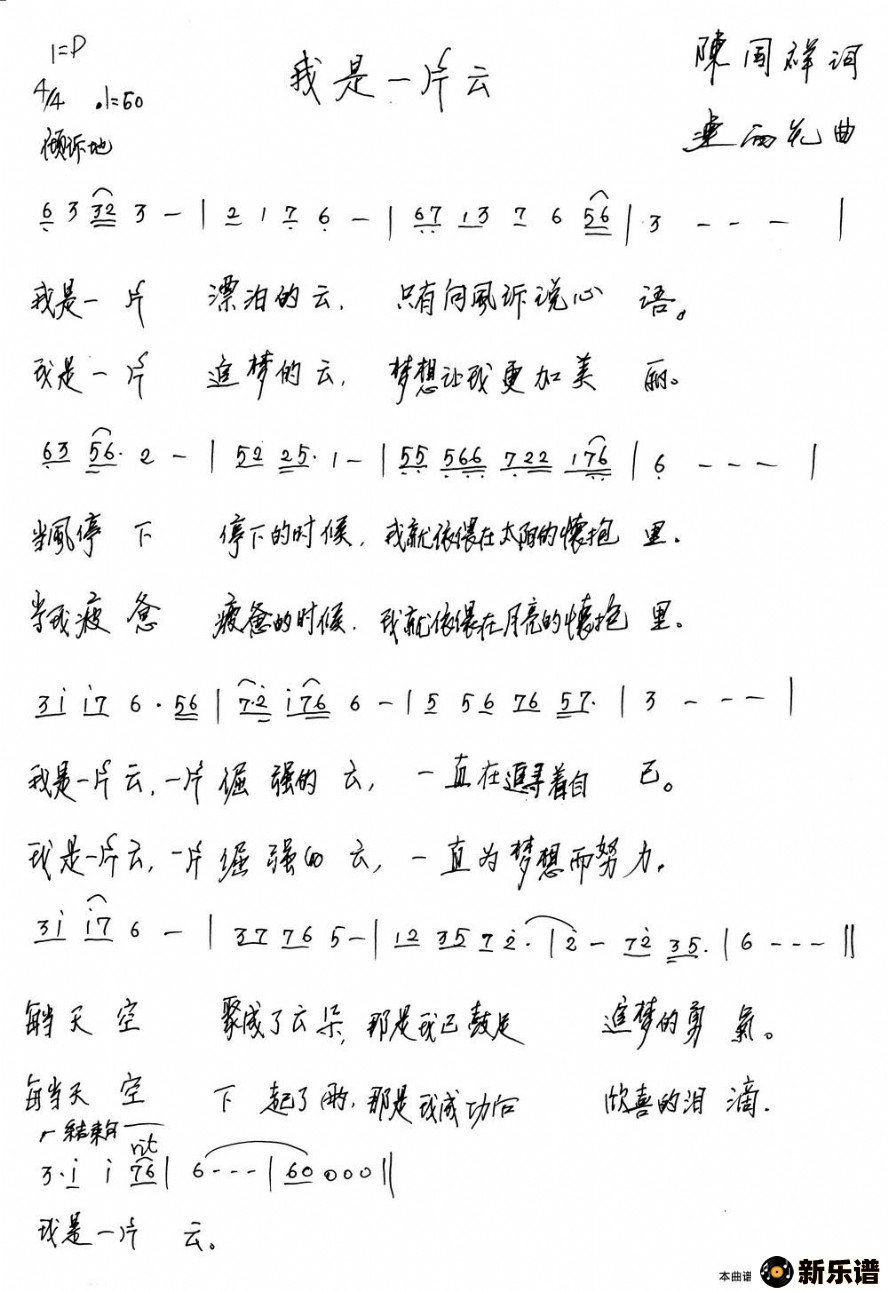 1=D
我是一片云
陳国祥词
4/4 ♩=60
连西花曲
倾诉地
6̣ 3 32 3 - | 2 1 7̣ 6̣ - | 6̣7̣ 13 7̣ 6 56 | 3 - - - |
我是一片 漂泊的云, 只有向風诉说心 语。
我是一片 追梦的云, 梦想让我更加美 丽。
6̣3 5̣6̣· 2 - | 52 25· 1 - | 5̣5̣ 5̣6̣6̣ 7̣22 17̣6̣ | 6̣ - - - |
当風停 下 停下的时候, 我就依偎在太阳的懷抱 里.
当我疲 惫 疲惫的时候. 我就依偎在月亮的懷抱 里。
3i i7 6 · 56 | 7·2̇ i76 6 - | 5 56 76 57· | 3 - - - |
我是一片云, 一片 倔 强的 云, 一直在追寻着自 己。
我是一片云, 一片 倔 强的 云, 一直为梦想而努 力.
3i i7 6 - | 37 76 5 - | 12 35 72̇· | 2̇ - 72̇ 35· | 6 - - - ||
每当天 空 聚成了云朵, 那是我已鼓足 追梦的勇 氣。
每当天 空 下 起了雨, 那是我成功后 欣喜的泪 滴.
结束句 rit
3·i i 76 | 6 - - - | 60 0 0 0 ||
我是一片 云。
本曲谱 新乐谱